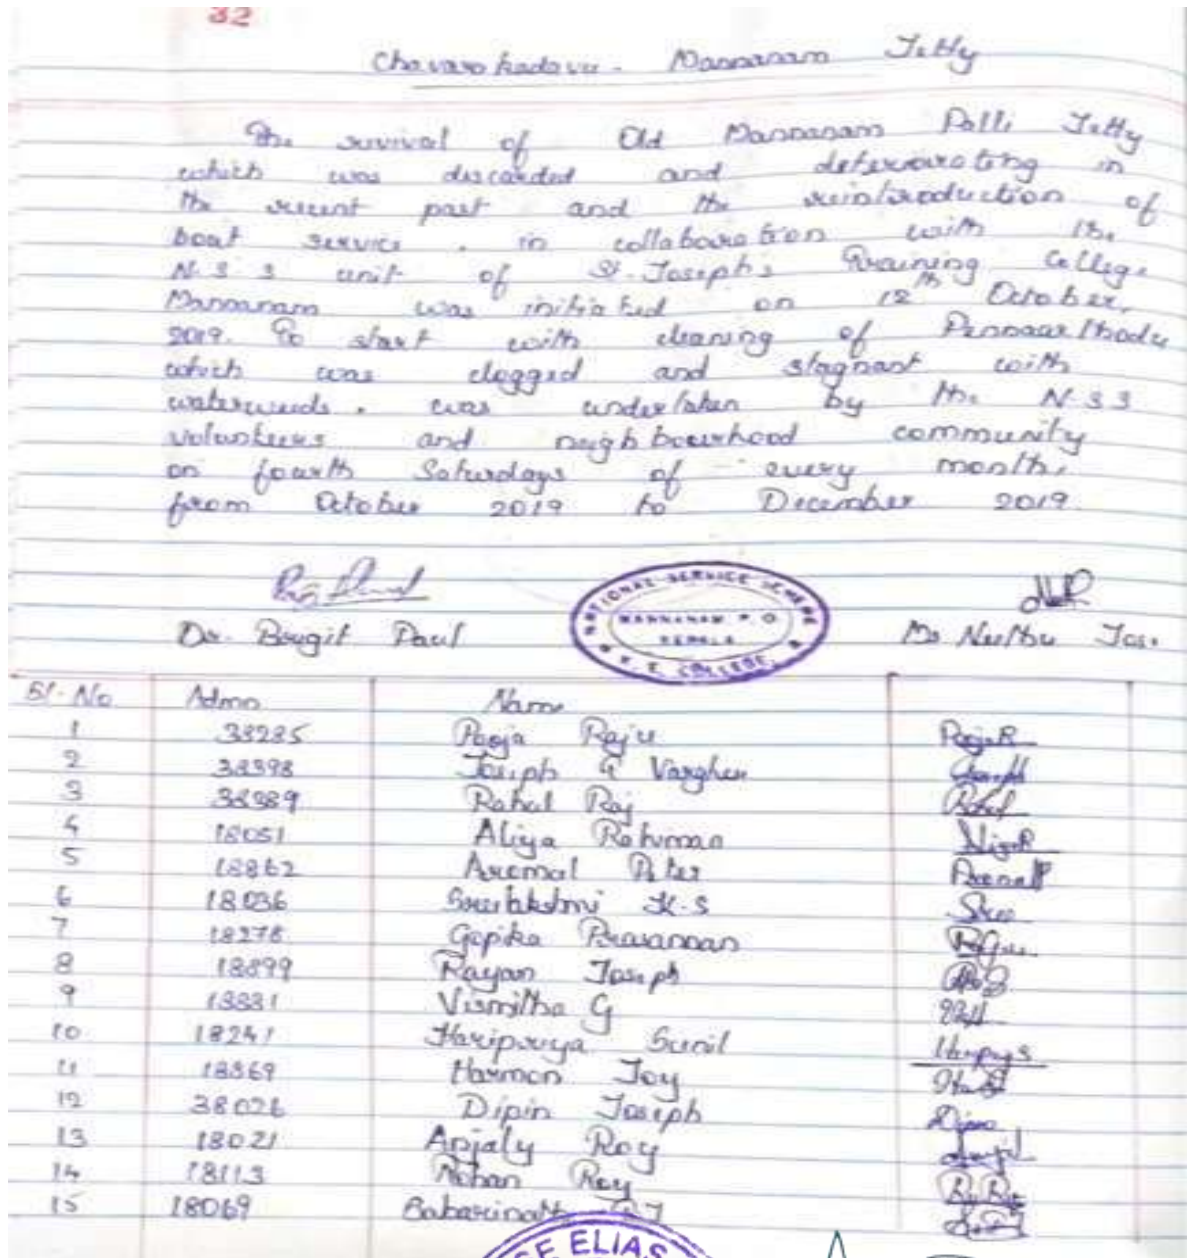 32
Chavarakadavu - Mannanam Jetty
The revival of Old Mannanam Palli Jetty
which was discarded and deteriorating in
the recent past and the reintroduction of
boat service . in collaboration with the
N.S.S unit of St. Joseph's Training College
Mannanam was initiated on 12th October,
2019. To start with cleaning of Pennaarthodu
which was clogged and stagnant with
waterweeds . was undertaken by the N.S.S
volunteers and neighbourhood community
on fourth Saturdays of every month,
from October 2019 to December 2019.
NATIONAL SERVICE SCHEME
MANNANAM P.O
KERALA
K. E. COLLEGE
Dr. Brigit Paul Ms Neethu Jose
Sl. No Admn Name
1 38285 Pooja Raju PoojaR
2 38398 Joseph G Varghese Joseph
3 38389 Rahul Raj Rahul
4 18051 Aliya Rahuman
5 18862 Aromal Peter
6 18036 Sreelakshmi K.S Sree
7 18278 Gopika Prasannan
8 18899 Rayan Joseph
9 18881 Vismitha G
10 18241 Haripriya Sunil
11 18869 Harmon Joy
12 38026 Dipin Joseph Dipin
13 18021 Anjaly Roy
14 18113 Rohan Roy
15 18069
SE ELIAS